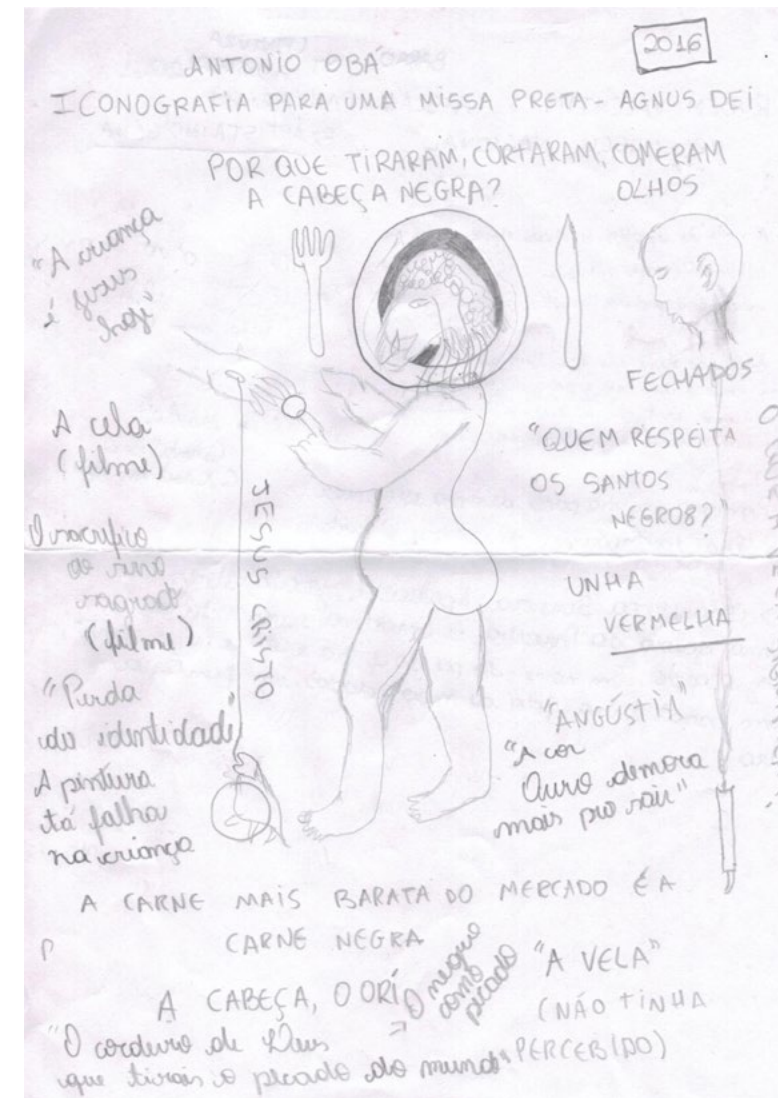 2016
ANTONIO OBÁ
ICONOGRAFIA PARA UMA MISSA PRETA - AGNUS DEI
POR QUE TIRARAM, CORTARAM, COMERAM
A CABEÇA NEGRA?
OLHOS
FECHADOS
"A criança
é jesus
hoje"
A cela
(filme)
O sacrifício
do
sagrado
(filme)
"Perda
de identidade"
A pintura
tá falha
na criança
JESUS CRISTO
"QUEM RESPEITA
OS SANTOS
NEGROS?"
UNHA
VERMELHA
"ANGÚSTIA"
"A cor
Ouro demora
mais pra sair"
A CARNE MAIS BARATA DO MERCADO É A
CARNE NEGRA
P
A CABEÇA, O ORÍ
O negro
como
pecado
"A VELA"
(NÃO TINHA
PERCEBIDO)
"O cordeiro de Deus
que tirais o pecado do mundo"